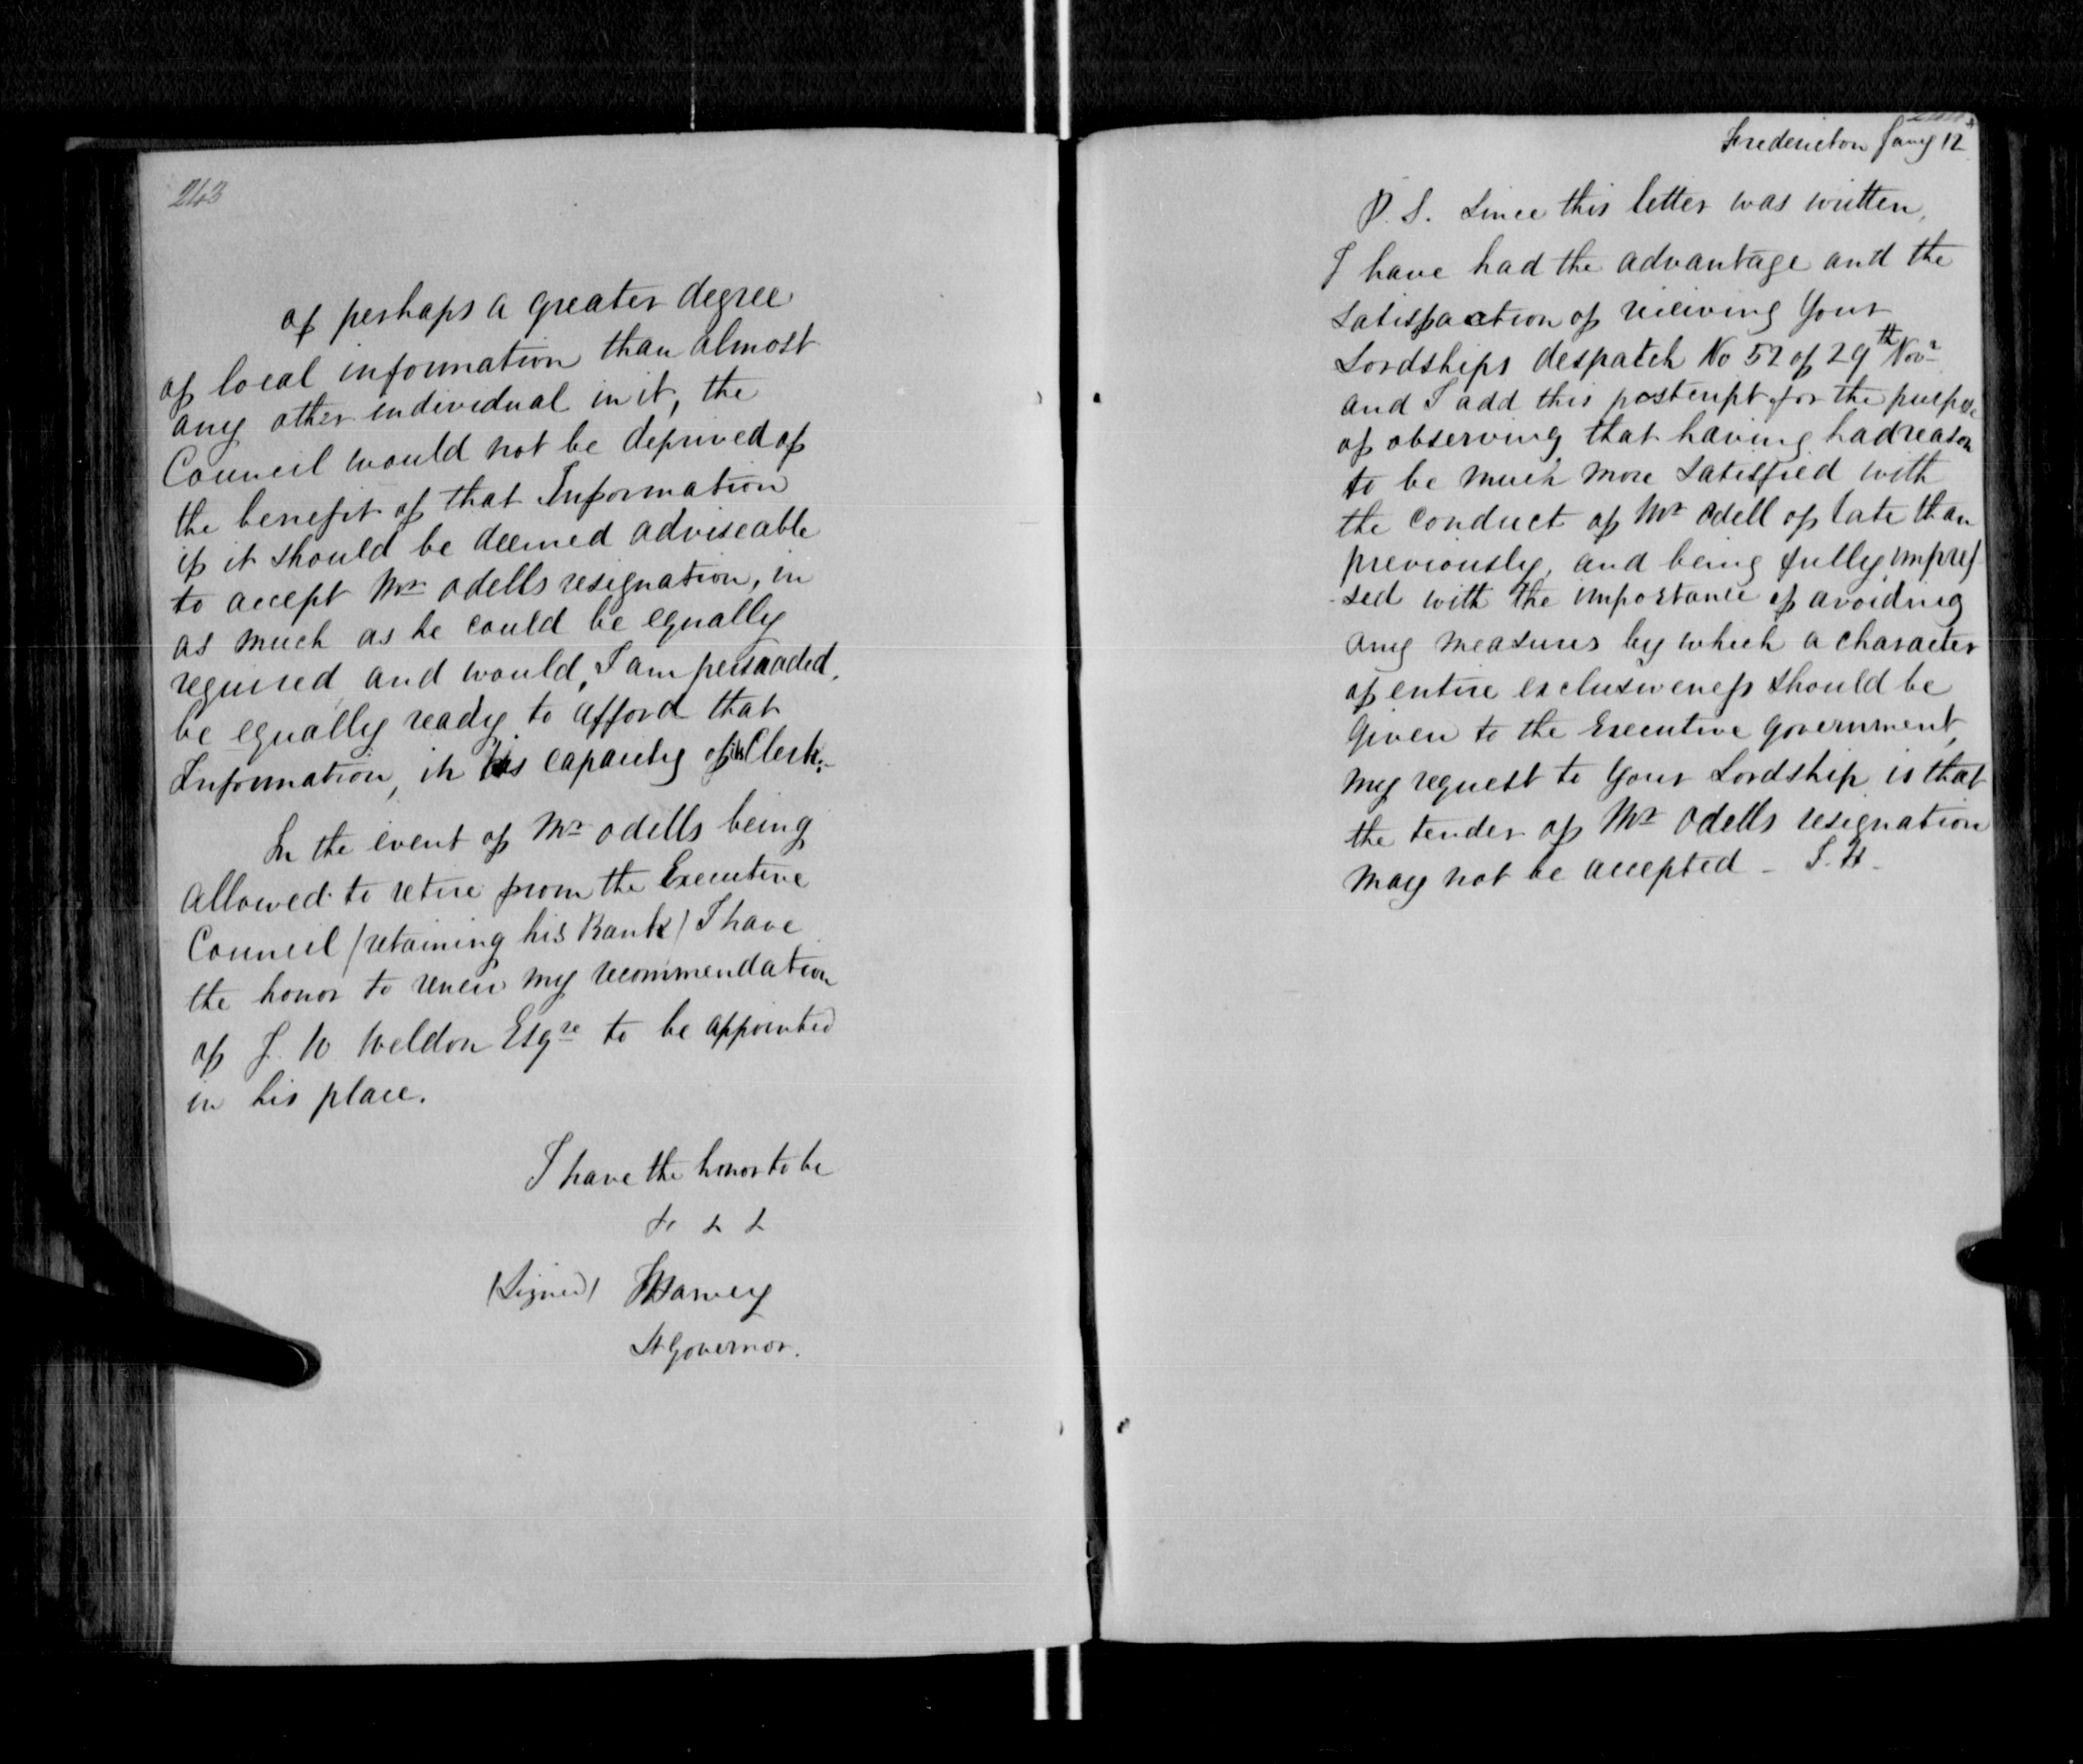 243
of perhaps a greater degree
of local information than almost
any other individual in it, the
Council would not be deprived of
the benefit of that Information
if it should be deemed adviseable
to accept Mr Odells resignation, in
as much as he could be equally
required and would, I am persuaded,
be equally ready to afford that
Information, in his capacity of Clerk.
In the event of Mr Odells being
allowed to retire from the Executive
Council (retaining his Rank) I have
the honor to renew my recommendation
of J. W Weldon Esqre to be appointed
in his place.
I have the honor to be
& & &
(Signed) J Harvey
Lt Governor.
Fredericton Jany 12
P. S. Since this letter was written,
I have had the advantage and the
satisfaction of receiving Your
Lordships despatch No 52 of 29th Novr
and I add this postcript for the purpose
of observing that having had reason
to be much more satisfied with
the conduct of Mr Odell of late than
previously, and being fully impres
-sed with the importance of avoiding
any measures by which a character
of entire exclusiveness should be
given to the Executive government,
my request to Your Lordship is that
the tender of Mr Odells resignation
may not be accepted - J. H -